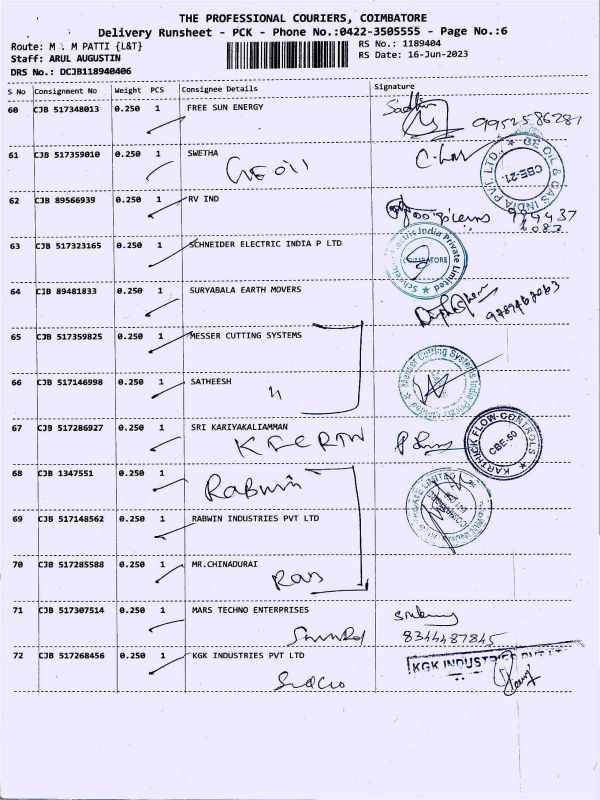 THE PROFESSIONAL COURIERS, COIMBATORE
Delivery Runsheet - PCK - Phone No.:0422-3505555 - Page No.:6
Route: M . M PATTI {L&T}
RS No.: 1189404
Staff: ARUL AUGUSTIN
RS Date: 16-Jun-2023
DRS No.: DCJB118940406
S No Consignment No Weight PCS Consignee Details Signature
60 CJB 517348013 0.250 1 FREE SUN ENERGY
9952586281
61 CJB 517359010 0.250 1 SWETHA
GE Oil
GE OIL & GAS INDIA PVT. LTD.,
CBE-21
62 CJB 89566939 0.250 1 RV IND
63 CJB 517323165 0.250 1 SCHNEIDER ELECTRIC INDIA P LTD
Schneider Electric India Private Limited
COIMBATORE
64 CJB 89481833 0.250 1 SURYABALA EARTH MOVERS
65 CJB 517359825 0.250 1 MESSER CUTTING SYSTEMS
66 CJB 517146998 0.250 1 SATHEESH
Messer Cutting Systems India Private Limited
67 CJB 517286927 0.250 1 SRI KARIYAKALIAMMAN
KARTHICK FLOW CONTROLS
CBE-50
68 CJB 1347551 0.250 1
Rabwin
69 CJB 517148562 0.250 1 RABWIN INDUSTRIES PVT LTD
70 CJB 517285588 0.250 1 MR.CHINADURAI
71 CJB 517307514 0.250 1 MARS TECHNO ENTERPRISES
8344487845
72 CJB 517268456 0.250 1 KGK INDUSTRIES PVT LTD
KGK INDUSTRIES PVT LT